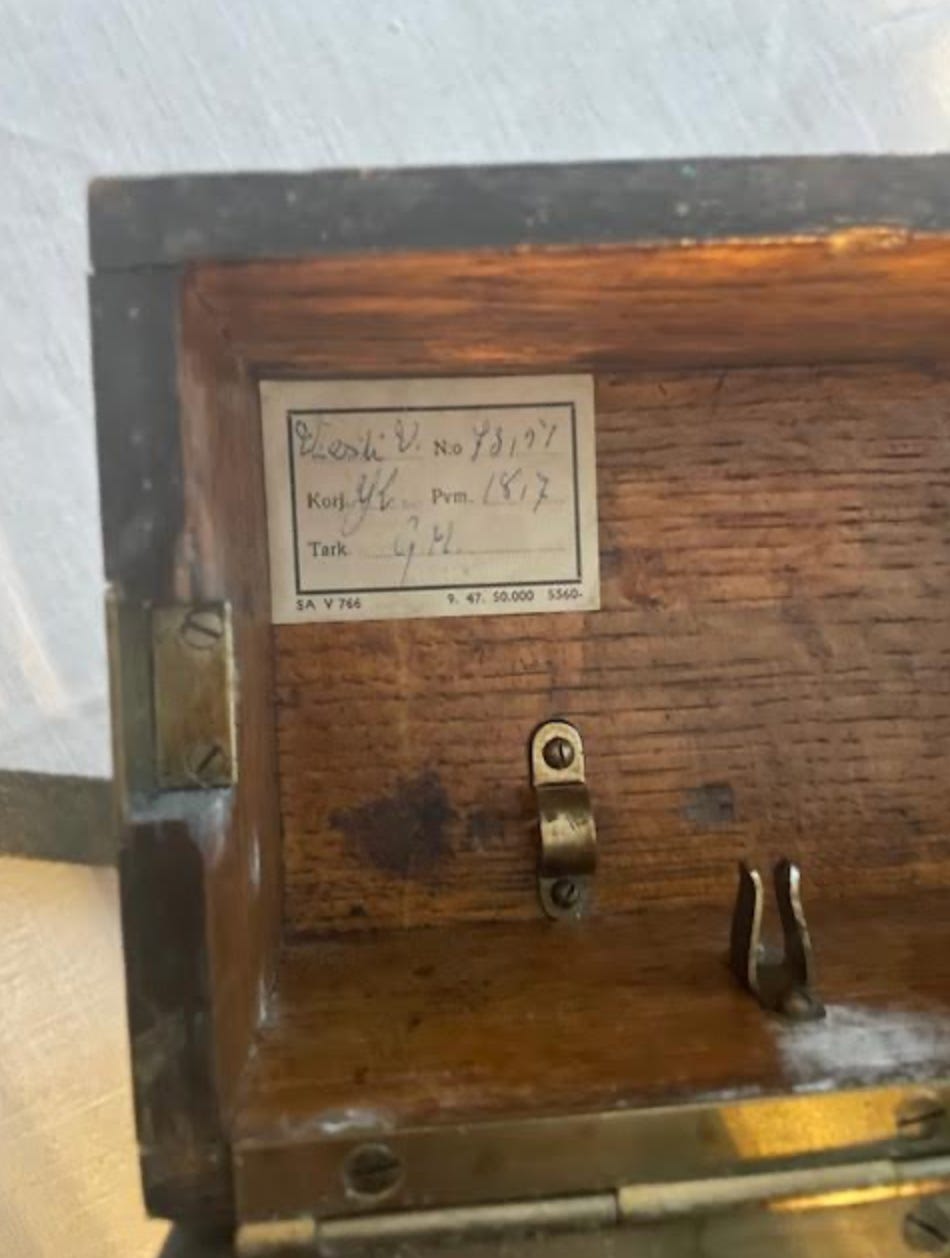 V. No
Korj. Pvm. 18,7
Tark. G H.
SA V 766 9. 47. 50.000 5560-